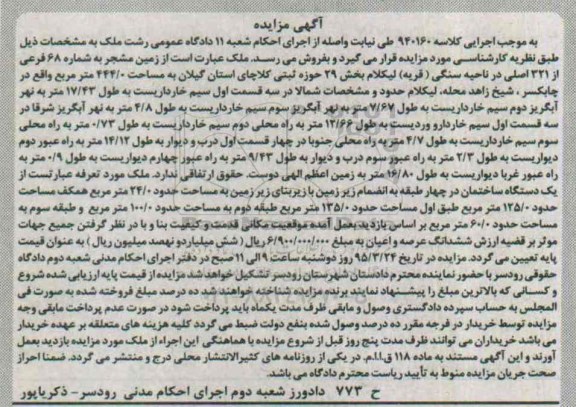 آگهی مزایده
به موجب اجرایی کلاسه ۹۴۰۱۶۰ طی نیابت واصله از اجرای احکام شعبه ۱۱ دادگاه عمومی رشت ملک به مشخصات ذیل
طبق نظریه کارشناسی مورد مزایده قرار می گیرد و بفروش می رسد. ملک عبارت است از زمین مشجر به شماره ۶۸ فرعی
از ۳۲۱ اصلی در ناحیه سنگی (قریه) لیکلام بخش ۲۹ حوزه ثبتی کلاچای استان گیلان به مساحت ۴۴۴/۰ متر مربع واقع در
چابکسر، شیخ زاهد محله، لیکلام حدود و مشخصات شمالا در سه قسمت اول سیم خارداریست به طول ۱۷/۴۳ متر به نهر
آبگریز دوم سیم خارداریست به طول ۷/۶۷ متر به نهر آبگریز سوم سیم خارداریست به طول ۴/۸ متر به نهر آبگریز شرقا در
سه قسمت اول سیم خاردارو وردیست به طول ۱۲/۶۶ متر به راه محلی دوم سیم خارداریست به طول ۰/۷۳ متر به راه محلی
سوم سیم خارداریست به طول ۴/۷ متر به راه محلی جنوبا در چهار قسمت اول درب و دیوار به طول ۱۴/۱۲ متر به راه عبور دوم
دیواریست به طول ۲/۳ متر به راه عبور سوم درب و دیوار به طول ۹/۴۳ متر به راه عبور چهارم دیواریست به طول ۰/۹ متر به
راه عبور غربا دیواریست به طول ۱۶/۸۰ متر به زمین اعظم الهی دوست. حقوق ارتفاقی ندارد. ملک مورد تعرفه عبارتست از
یک دستگاه ساختمان در چهار طبقه به انضمام زیر زمین با زیربنای زیر زمین به مساحت حدود ۲۴/۰ متر مربع همکف مساحت
حدود ۱۲۵/۰ متر مربع طبق اول مساحت حدود ۱۳۵/۰ متر مربع طبقه دوم به مساحت حدود ۱۰۰/۰ متر مربع و طبقه سوم به
مساحت حدود ۶۰/۰ متر مربع بر اساس بازدید بعمل آمده موقعیت مکانی قدمت و کیفیت بنا و با در نظر گرفتن جمیع جهات
موثر بر قضیه ارزش ششدانگ عرصه و اعیان به مبلغ ۶/۹۰۰/۰۰۰/۰۰۰ ریال (شش میلیاردو نهصد میلیون ریال) به عنوان قیمت
پایه تعیین می گردد. مزایده در تاریخ ۹۵/۳/۲۴ روز دوشنبه ساعت ۹ الی ۱۱ صبح در دفتر اجرای احکام مدنی شعبه دوم دادگاه
حقوقی رودسر با حضور نماینده محترم دادستان شهرستان رودسر تشکیل خواهد شد مزایده از قیمت پایه ارزیابی شده شروع
و کسانی که بالاترین مبلغ را پیشنهاد نمایند برنده مزایده شناخته خواهند شد ده درصد مبلغ فروخته شده به صورت فی
المجلس به حساب سپرده دادگستری وصول و مابقی ظرف مدت یکماه باید پرداخت شود در صورت عدم پرداخت مابقی وجه
مزایده توسط خریدار در فرجه مقرر ده درصد وصول شده بنفع دولت ضبط می گردد کلیه هزینه های متعلقه بر عهده خریدار
می باشد خریداران می توانند ظرف مدت پنج روز قبل از شروع مزایده با هماهنگی این اجراء از ملک مورد مزایده بازدید بعمل
آورند و این آگهی مستند به ماده ۱۱۸ ق.ا.م. در یکی از روزنامه های کثیرالانتشار محلی درج و منتشر می گردد. ضمنا احراز
صحت جریان مزایده منوط به تأیید ریاست محترم دادگاه می باشد.
ح ۷۷۳ دادورز شعبه دوم اجرای احکام مدنی رودسر- ذکریاپور